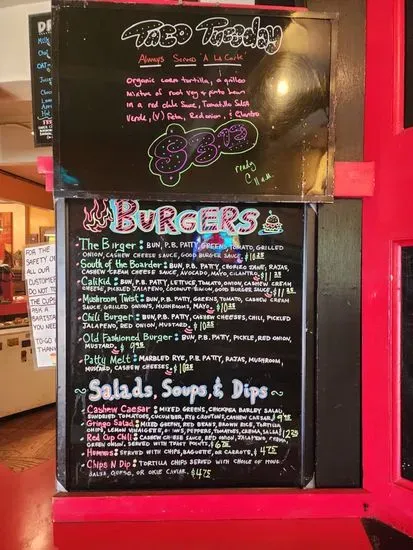 Taco Tuesday
Always Served A La Carte
Organic corn tortilla, a grilled
mixture of root veg & pinto bean
in a red chile sauce, Tomatillo Salsa
Verde, (V) Feta, Red onion, & Cilantro
ready
@ 11 a.m.
FOR THE
SAFETY OF
ALL OUR
CUSTOMER
THE CUPS
ASK A
BARISTA
YOU NEED
TO GO
BURGERS
The Burger: BUN, P.B. PATTY, GREENS, TOMATO, GRILLED
ONION, CASHEW CHEESE SAUCE, GOOD BURGER SAUCE.
South of the Boarder: BUN, P.B. PATTY, CHORIZO, RAJAS,
CASHEW CREAM CHEESE SAUCE, AVOCADO, MAYO, CILANTRO.
Cali Kid: BUN, P.B. PATTY, LETTUCE, TOMATO, ONION, CASHEW CREAM
CHEESE, PICKLED JALAPENO, COCONUT-BACON, GOOD BURGER SAUCE.
Mushroom Twist: BUN, P.B. PATTY, GREENS, TOMATO, CASHEW CREAM
SAUCE, GRILLED ONIONS, MUSHROOMS, MAYO.
Chili Burger: BUN, P.B. PATTY, CASHEW CHEESES, CHILI, PICKLED
JALAPENO, RED ONION, MUSTARD.
Old Fashioned Burger: BUN, P.B. PATTY, PICKLE, RED ONION,
MUSTARD.
Patty Melt: MARBLED RYE, P.B. PATTY, RAJAS, MUSHROOM,
MUSTARD, CASHEW CHEESES.
Salads, Soups, & Dips
Cashew Caesar: MIXED GREENS, CHICKPEA BARLEY SALAD,
SUNDRIED TOMATOES, CUCUMBER, RYE CROUTONS, CASHEW CAESAR
Gringo Salad: MIXED GREENS, RED BEANS, BROWN RICE, TORTILLA
CHIPS, LEMON VINAIGETTE, ONIONS, PEPPERS, TOMATOES, CREMA, SALSA
Red Cup Chili: CASHEW CHEESE SAUCE, RED ONION, JALAPENO, CREMA,
GREEN ONION. SERVED WITH TOAST POINTS.
Hummus: SERVED WITH CHIPS, BAGUETTE, OR CARROTS. $4.75
Chips N Dip: TORTILLA CHIPS SERVED WITH CHOICE OF HOUSE
SALSA, QUESO, OR OKIE CAVIAR. $4.75